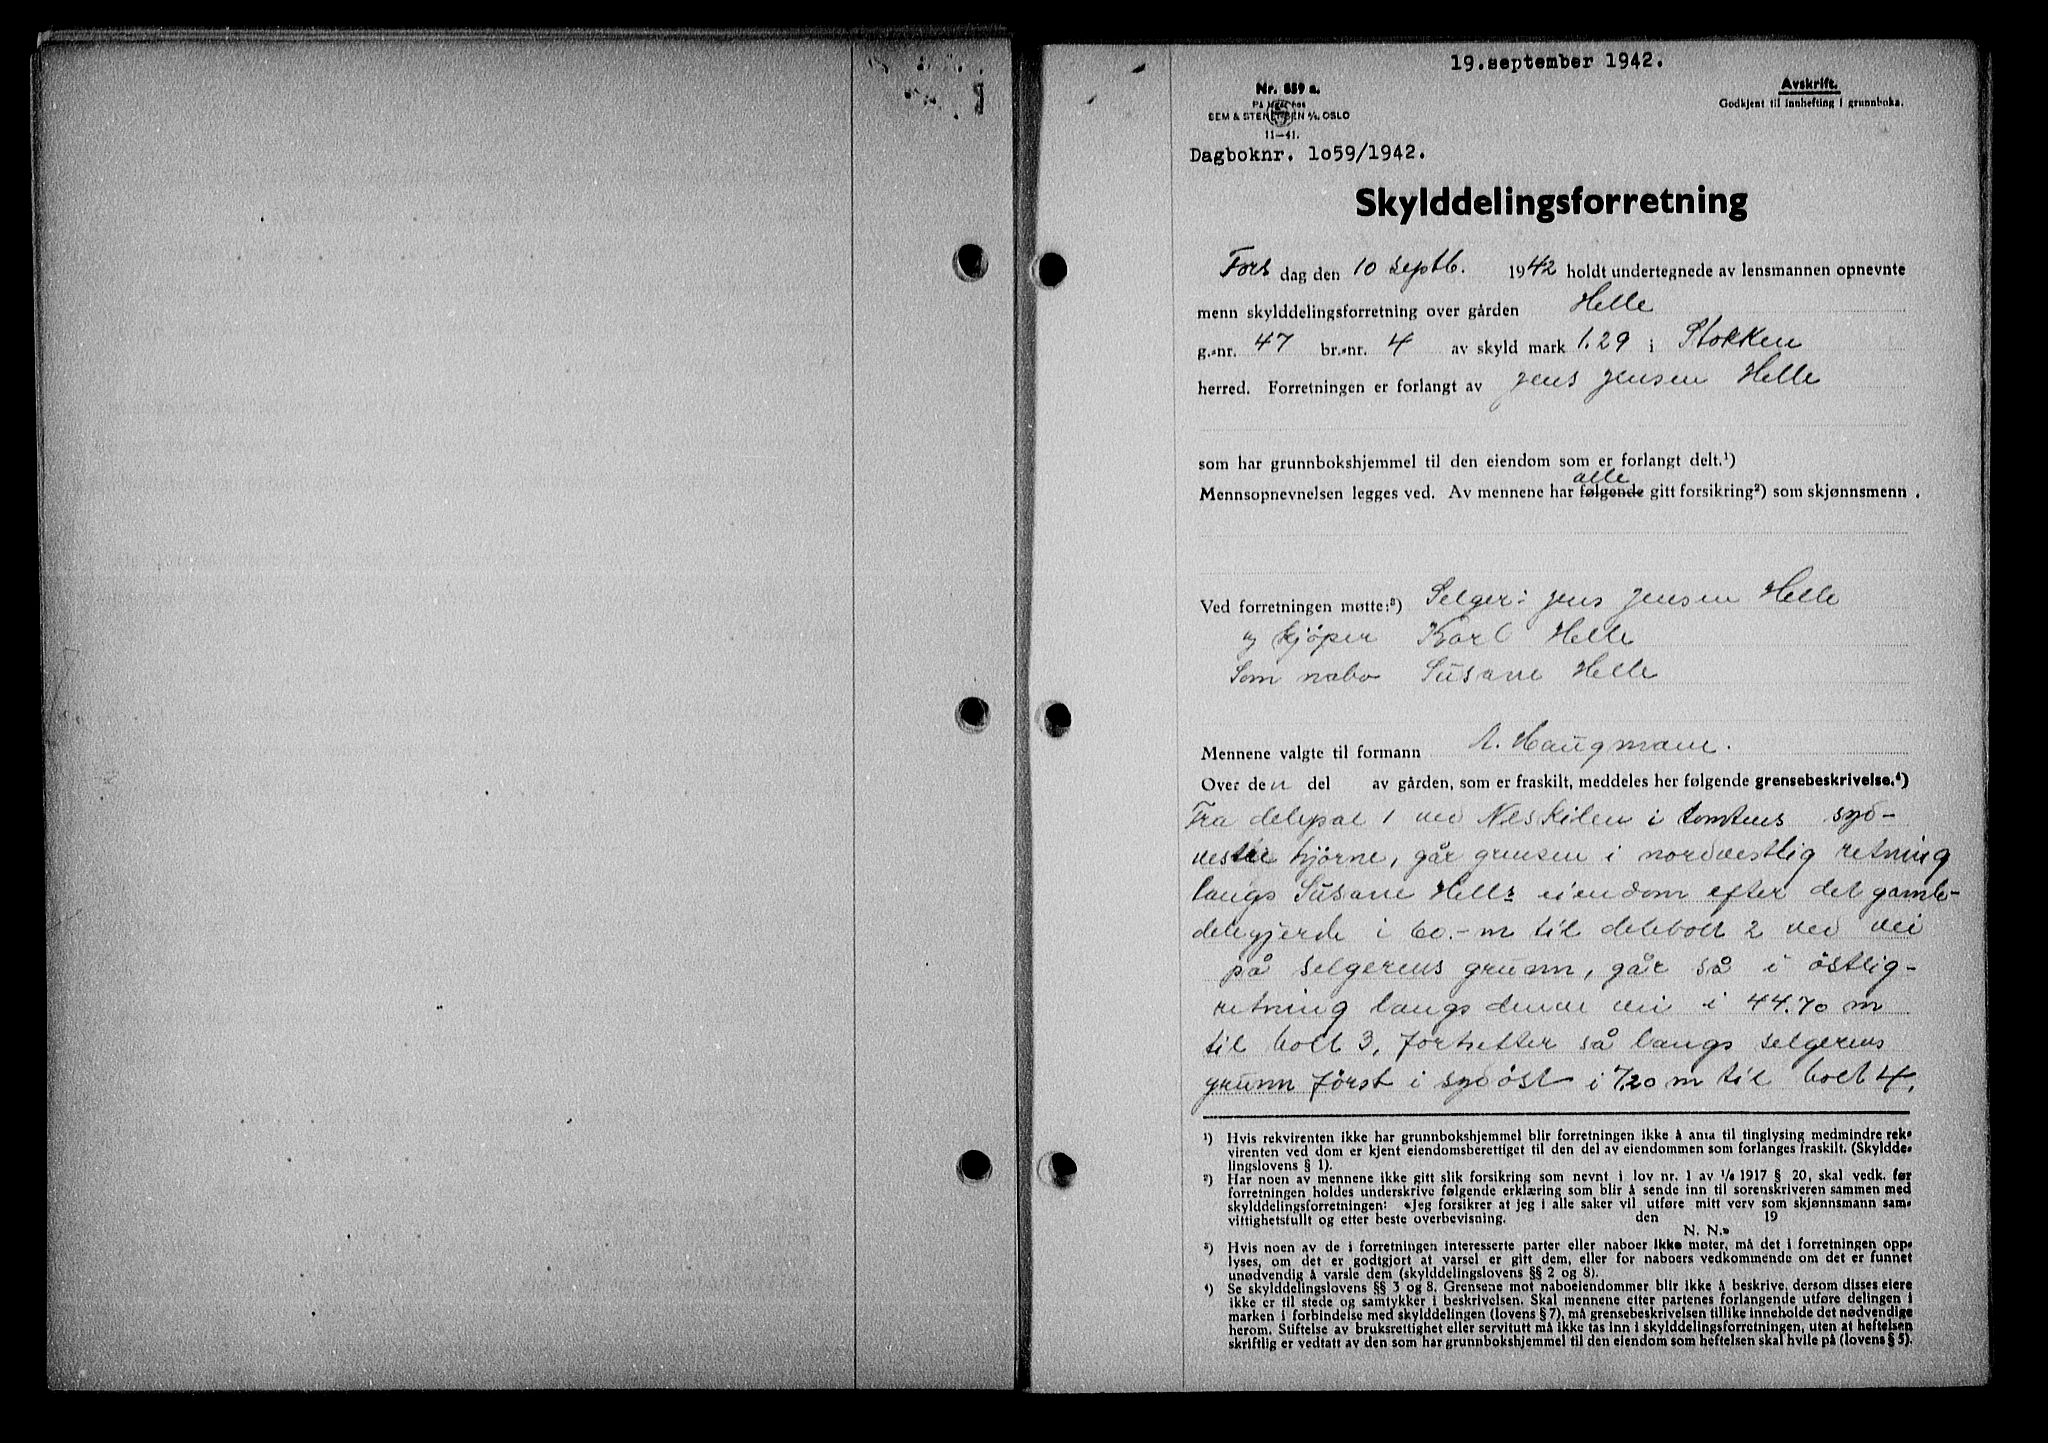 19.september 1942.
Nr. 859 a.
På lager hos
SEM & STENERSEN A/S OSLO
11—41.
Avskrift.
Godkjent til innhefting i grunnboka.
Dagboknr. 1o59/1942.
Skylddelingsforretning
Tors dag den 10 septb. 1942 holdt undertegnede av lensmannen opnevnte
menn skylddelingsforretning over gården Helle
g.-nr. 47 br.-nr. 4 av skyld mark 1.29 i Stokken
herred. Forretningen er forlangt av Jens Jensen Helle
som har grunnbokshjemmel til den eiendom som er forlangt delt.¹)
alle
Mennsopnevnelsen legges ved. Av mennene har følgende gitt forsikring²) som skjønnsmenn .
Ved forretningen møtte:³) Selger: Jens Jensen Helle
og kjøper Karl Helle
Som nabo Susane Helle
Mennene valgte til formann A. Haugmann.
Over den del av gården, som er fraskilt, meddeles her følgende grensebeskrivelse.⁴)
Fra delepæl 1 ved Neskilen i tomtens syd-
vestre hjørne, går grensen i nordvestlig retning
langs Susane Helles eiendom efter det gamle
delegjerde i 60.-m til delebolt 2 ved vei
på selgerens grunn, går så i östlig-
retning langs denne vei i 44.70 m
til bolt 3, fortsetter så langs selgerens
grunn först i sydöst i 7.20 m til bolt 4.
¹) Hvis rekvirenten ikke har grunnbokshjemmel blir forretningen ikke å anta til tinglysing medmindre rek-
virenten ved dom er kjent eiendomsberettiget til den del av eiendommen som forlanges fraskilt. (Skyldde-
lingslovens § 1).
²) Har noen av mennene ikke gitt slik forsikring som nevnt i lov nr. 1 av 1/6 1917 § 20, skal vedk. før
forretningen holdes underskrive følgende erklæring som blir å sende inn til sorenskriveren sammen med
skylddelingsforretningen: «Jeg forsikrer at jeg i alle saker vil utføre mitt verv som skjønnsmann sam-
vittighetsfullt og etter beste overbevisning. den 19
N. N.»
³) Hvis noen av de i forretningen interesserte parter eller naboer ikke møter, må det i forretningen opp-
lyses, om det er godtgjort at varsel er gitt dem, eller for naboers vedkommende om det er funnet
unødvendig å varsle dem (skylddelingslovens §§ 2 og 8).
⁴) Se skylddelingslovens §§ 3 og 8. Grensene mot naboeiendommer blir ikke å beskrive, dersom disses eiere
ikke er til stede og samtykker i beskrivelsen. Skal mennene etter partenes forlangende utføre delingen i
marken i forbindelse med skylddelingen (lovens § 7), må grensebeskrivelsen tillike inneholde det nødvendige
herom. Stiftelse av bruksrettighet eller servitutt må ikke tas inn i skylddelingsforretningen, uten at heftelsen
skriftlig er vedtatt av den som har grunnbokshjemmel til den eiendom som heftelsen skal hvile på (lovens § 5).